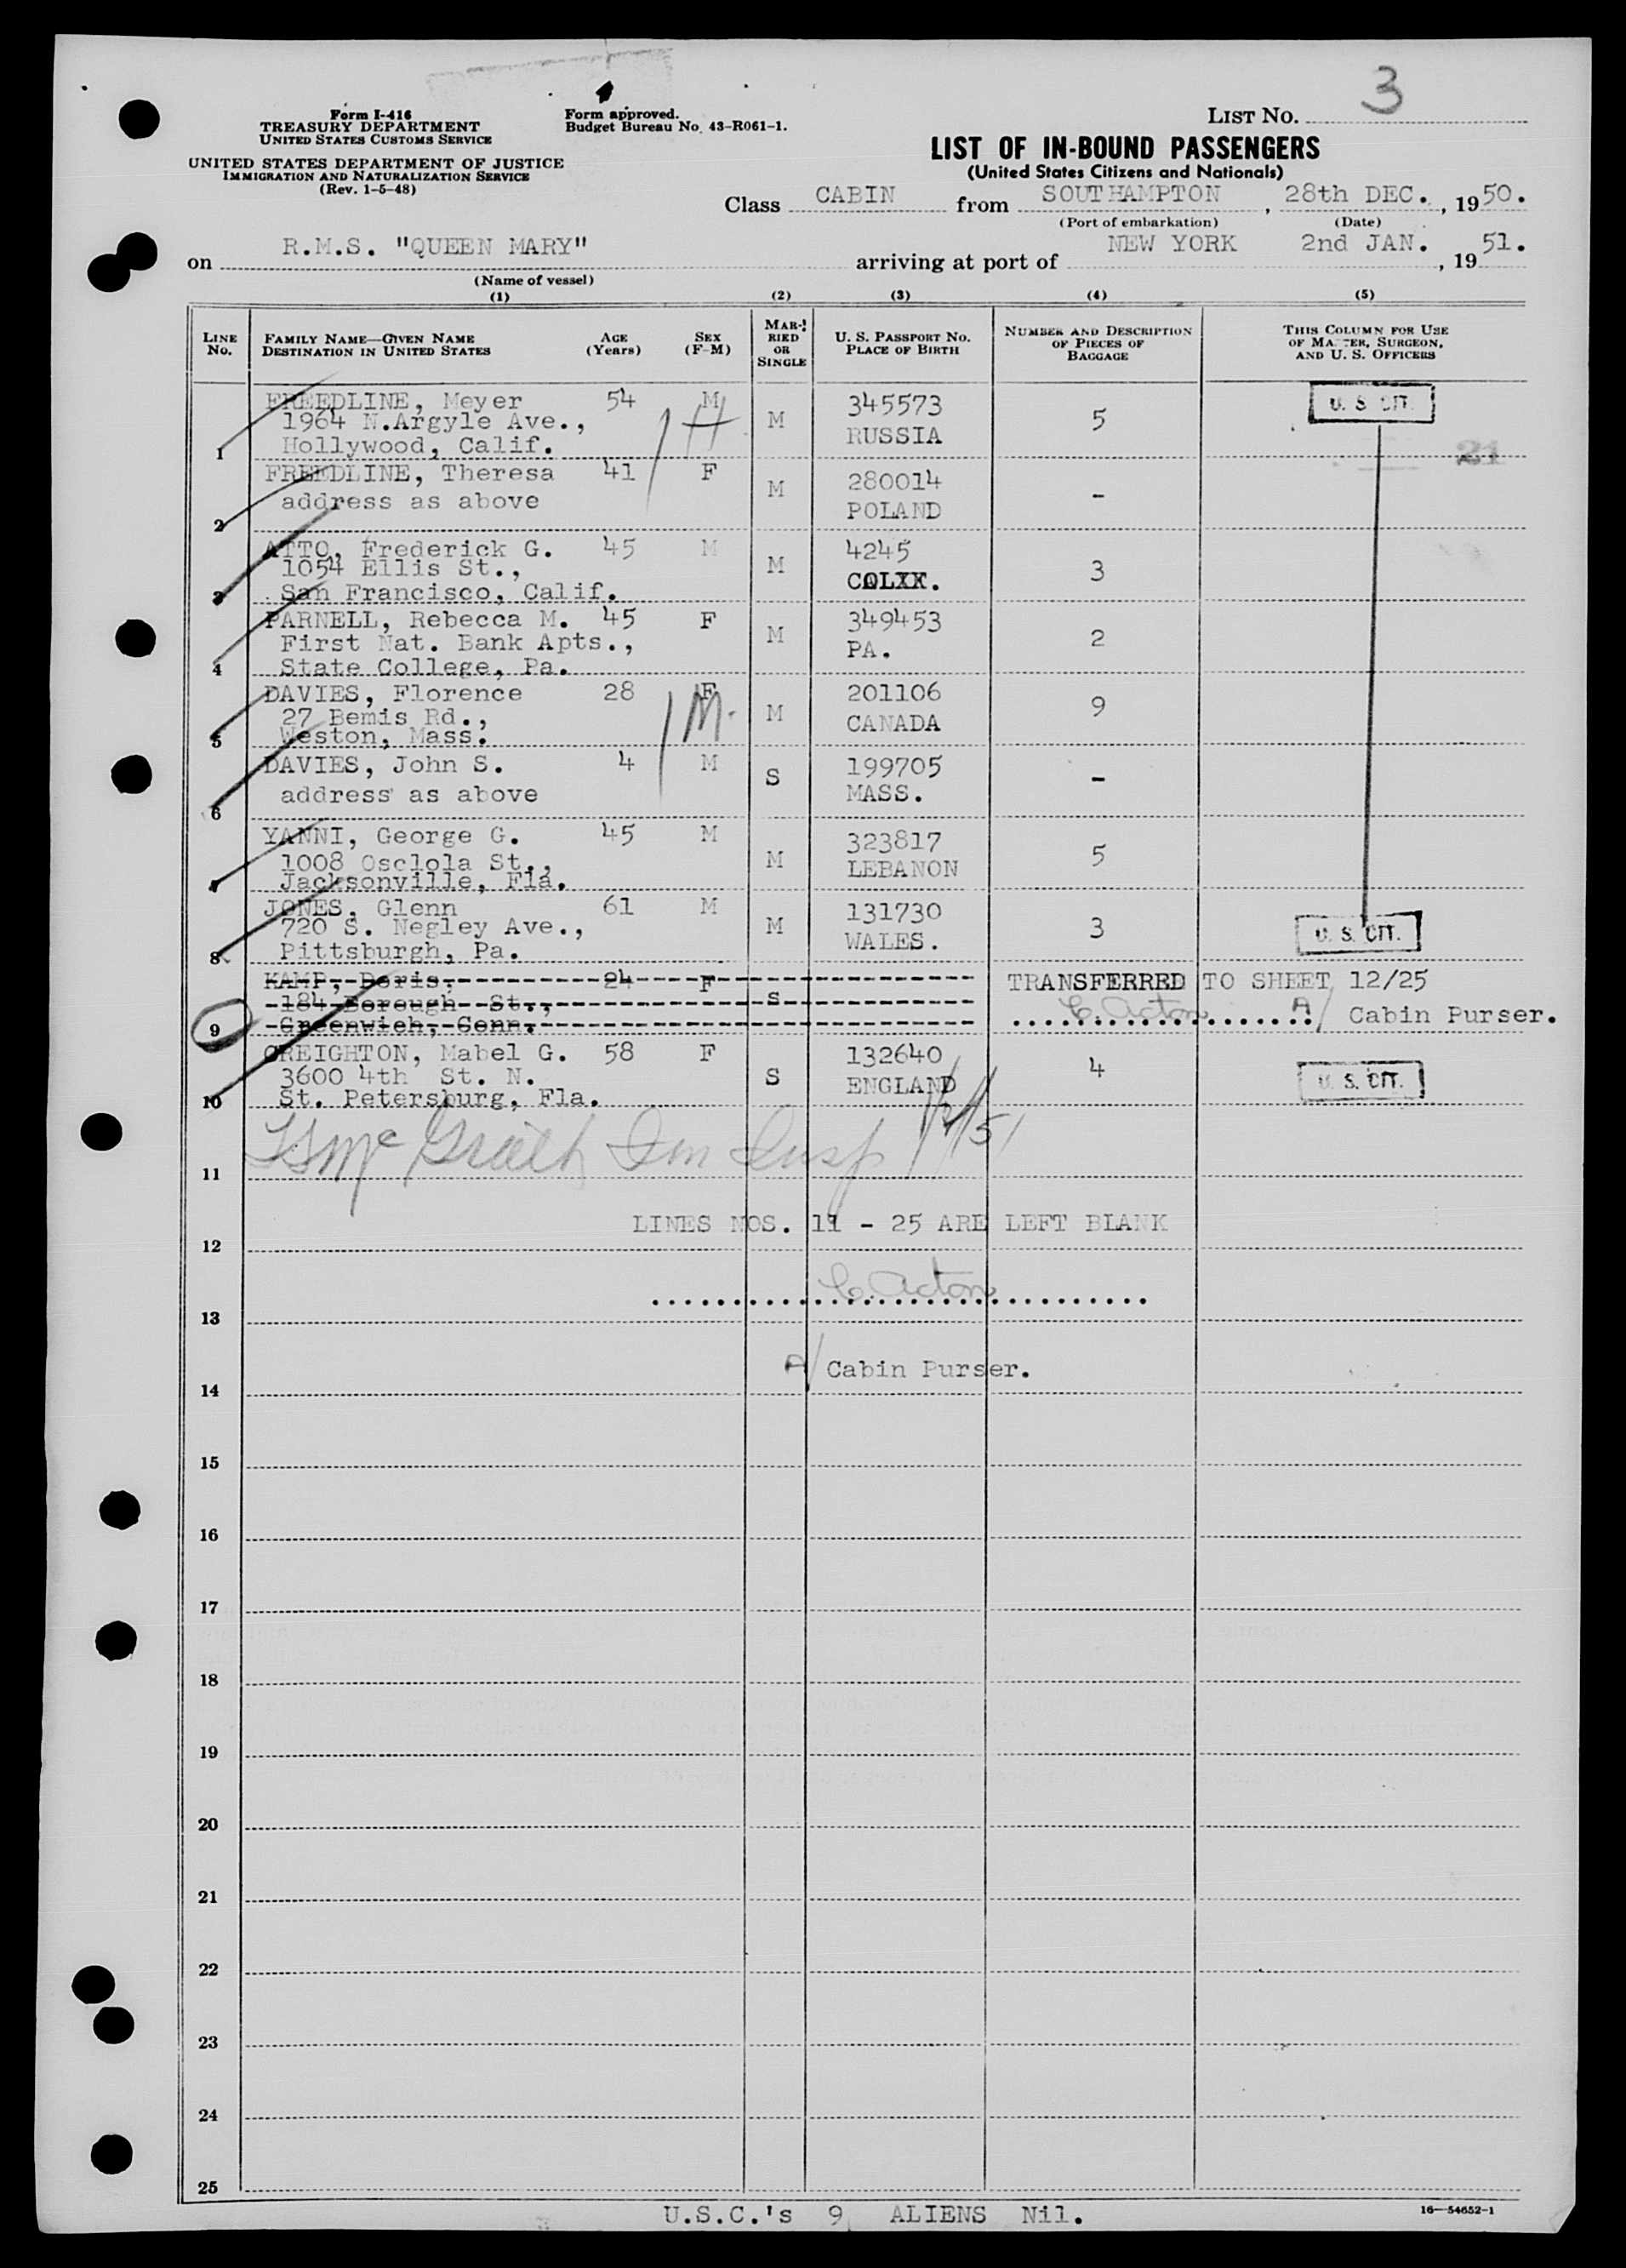 3
Form I-416
TREASURY DEPARTMENT
UNITED STATES CUSTOMS SERVICE
Form approved.
Budget Bureau No. 43-R061-1.
LIST NO.
UNITED STATES DEPARTMENT OF JUSTICE
IMMIGRATION AND NATURALIZATION SERVICE
(Rev. 1-5-48)
LIST OF IN-BOUND PASSENGERS
(United States Citizens and Nationals)
Class CABIN from SOUTHAMPTON, 28th DEC., 1950.
(Port of embarkation) (Date)
on R.M.S. "QUEEN MARY" arriving at port of NEW YORK 2nd JAN., 1951.
(Name of vessel)
(1) (2) (3) (4) (5)
LINE No. FAMILY NAME—GIVEN NAME DESTINATION IN UNITED STATES AGE (Years) SEX (F-M) MARRIED OR SINGLE U. S. PASSPORT No. PLACE OF BIRTH NUMBER AND DESCRIPTION OF PIECES OF BAGGAGE THIS COLUMN FOR USE OF MASTER, SURGEON, AND U. S. OFFICERS
FREEDLINE, Meyer 54 M M 345573 5 U. S. CIT.
1964 N.Argyle Ave., RUSSIA
1 Hollywood, Calif. 21
FREEDLINE, Theresa 41 F M 280014 -
address as above POLAND
2
ATTO, Frederick G. 45 M M 4245 3
1054 Ellis St.,
3 San Francisco, Calif.
PARNELL, Rebecca M. 45 F M 349453 2
First Nat. Bank Apts., PA.
4 State College, Pa.
DAVIES, Florence 28 F M 201106 9
27 Bemis Rd., CANADA
5 Weston, Mass.
DAVIES, John S. 4 M S 199705 -
address as above MASS.
6
YANNI, George G. 45 M M 323817 5
1008 Osclola St., LEBANON
7 Jacksonville, Fla.
JONES, Glenn 61 M M 131730 3 U. S. CIT.
720 S. Negley Ave., WALES.
8 Pittsburgh, Pa.
KAMP, Doris, 24 F S TRANSFERRED TO SHEET 12/25
184 Borough St.,
9 Greenwich, Conn. C. Acton A/ Cabin Purser.
CREIGHTON, Mabel G. 58 F S 132640 4 U. S. CIT.
3600 4th St. N. ENGLAND
10 St. Petersburg, Fla.
McGrath Im Insp 1/2/51
11
LINES NOS. 11 - 25 ARE LEFT BLANK
12
C. Acton
13
A/ Cabin Purser.
14
15
16
17
18
19
20
21
22
23
24
25
U.S.C.'s 9 ALIENS Nil.
16—54652-1